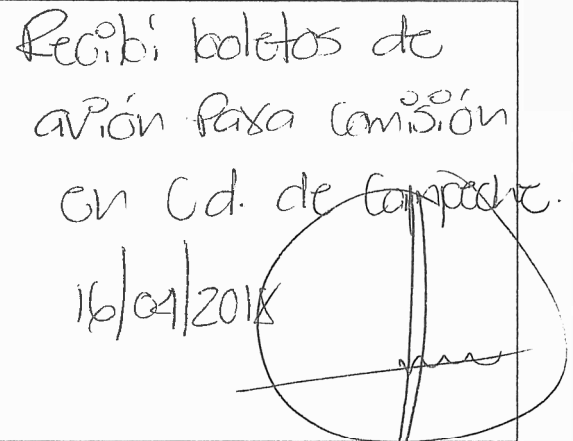 Recibí boletos de
avión para comisión
en Cd. de Campeche.
16/04/2018